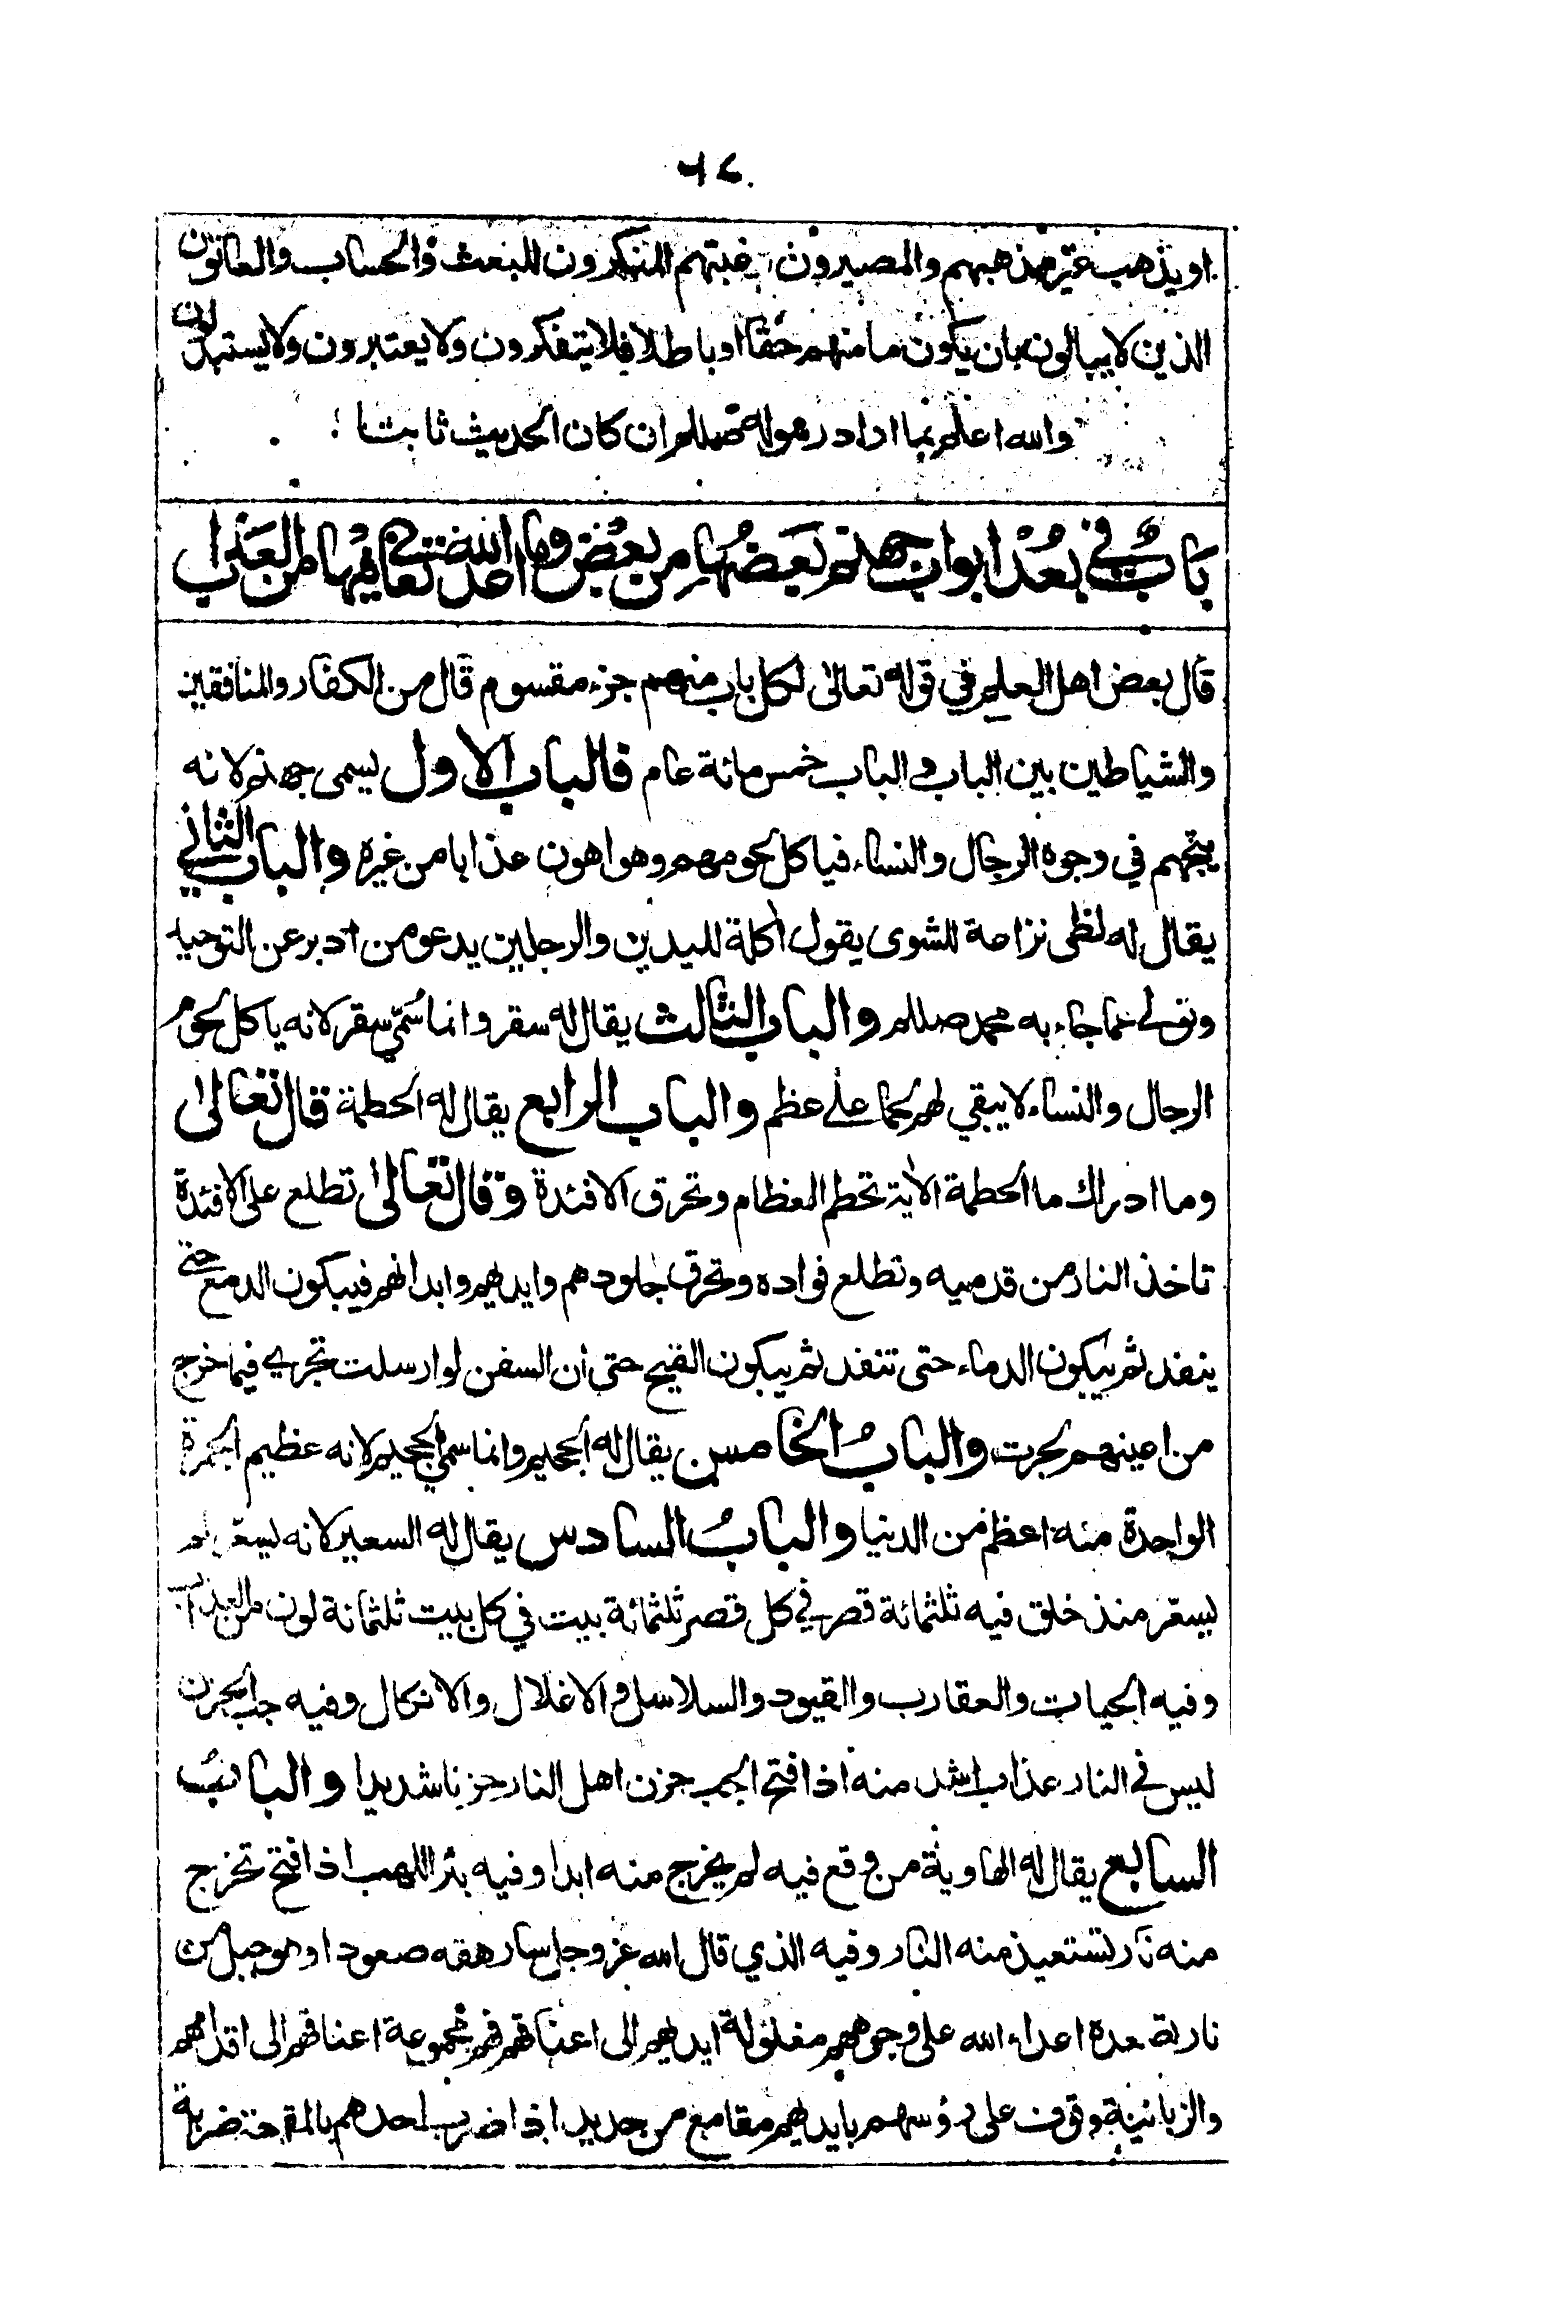 او يذهب عن مذهبهم والمصيرون رغبتهم المنكرون للبعث والحساب والعاتون
الذين لا يبالون بان يكون ما منهم حقا او باطلا فلا يتفكرون ولا يعتبرون ولا يستهلون
والله اعلم بما اراد رسوله صللم ان كان الحديث ثابتا
باب في بعد ابواب جهنم بعضها من بعض وما اعد الله تعالى فيها من العذاب
قال بعض اهل العلم في قوله تعالى لكل باب منهم جزء مقسوم قال من الكفار والمنافقين
والشياطين بين الباب والباب خمس مائة عام فالباب الاول يسمى جهنم لانه
يتجهم في وجوه الرجال والنساء فياكل لحومهم وهو اهون عذابا من غيره والباب الثاني
يقال له لظى نزاعة للشوى يقول اكلة لليدين والرجلين يدعو من ادبر عن التوحيد
وتولى عما جاء به محمد صللم والباب الثالث يقال له سقر وانما سمي سقر لانه ياكل لحوم
الرجال والنساء لا يبقي لهم لحما على عظم والباب الرابع يقال له الحطمة قال تعالى
وما ادراك ما الحطمة الاية تحطم العظام وتحرق الافئدة وقال تعالى تطلع على الافئدة
تاخذ النار من قدميه وتطلع فواده وتحرق جلودهم وايديهم وابدانهم فيبكون الدمع حتى
ينفد ثم يبكون الدماء حتى تنفد ثم يبكون القيح حتى ان السفن لو ارسلت تجري فيما خرج
من اعينهم لجرت والباب الخامس يقال له الجحيم وانما سمي الجحيم لانه عظيم الجمرة
الواحدة منه اعظم من الدنيا والباب السادس يقال له السعير لانه يسعر لم
يسعر منذ خلق فيه ثلثمائة قصر في كل قصر ثلثمائة بيت في كل بيت ثلثمائة لون من العذاب
وفيه الحيات والعقارب والقيود والسلاسل والاغلال والانكال وفيه جب الحزن
ليس في النار عذاب اشد منه اذا فتح الجب حزن اهل النار حزنا شديدا والباب
السابع يقال له الهاوية من وقع فيه لم يخرج منه ابدا وفيه بئر اللهب اذا فتح تخرج
منه نار تستعيذ منه النار وفيه الذي قال الله عز وجل سارهقه صعودا وهو جبل من
نار يصعده اعداء الله على وجوههم مغلولة ايديهم الى اعناقهم فهم مجموعة اعناقهم الى اقدامهم
والزبانية وقوف على رؤسهم بايديهم مقامع من حديد اذا ضرب احدهم بالمقمعة ضربة